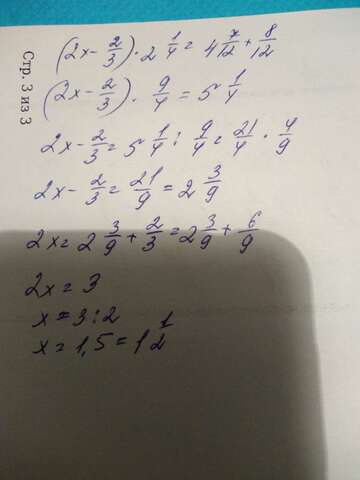 Стр. 3 из 3
(2x - 2/3) · 2 1/4 = 4 7/12 + 8/12
(2x - 2/3) · 9/4 = 5 1/4
2x - 2/3 = 5 1/4 : 9/4 = 21/4 · 4/9
2x - 2/3 = 21/9 = 2 3/9
2x = 2 3/9 + 2/3 = 2 3/9 + 6/9
2x = 3
x = 3 : 2
x = 1,5 = 1 1/2